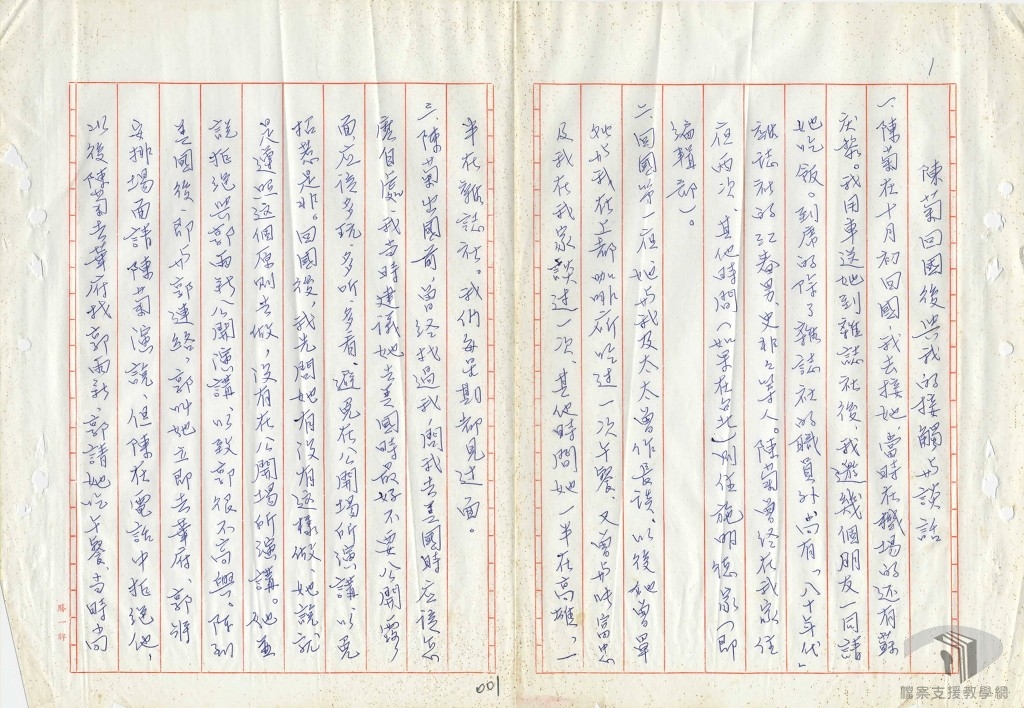 1
陳菊回國後與我的接觸與談話
一、陳菊在十月初回國,我去接她,當時在機場的還有蘇
慶黎。我用車送她到雜誌社後,我邀幾個朋友一同請
她吃飯到席的除了雜誌社的職員外尚有「八十年代」
雜誌社的江春男、史非非等人。陳菊曾經在我家住
在兩次,其他時間(如果在台北)則住施明德家(即
編輯部)。
二、回國第一夜她與我及太太曾作長談。以後她曾單
她與我在上都咖啡廳吃過一次午餐,又曾與叶富忠
及我在我家談過一次,其他時間她一半在高雄,一
半在雜誌社。我們每星期都見過面。
三、陳菊出國前曾經找過我,問我去美國時應該怎
麼自處,我當時建議她去美國時最好不要公開露
面應該多玩、多听、多看,避免在公開場所演講,以免
招惹是非。回國後我先問她有沒有這樣做,她說就
是遵照這個原則去做,沒有在公開場所演講。她並
說拒絕與郭雨新公開演講,以致郭很不高興。陳到
美國後,即與郭連絡,郭叫她立即去華府,郭將
安排場面請陳菊演說,但陳在電話中拒絕他,
以後陳菊去華府找郭雨新,郭請她吃午餐當時尚
001
勝一牌
檔案支援教學網